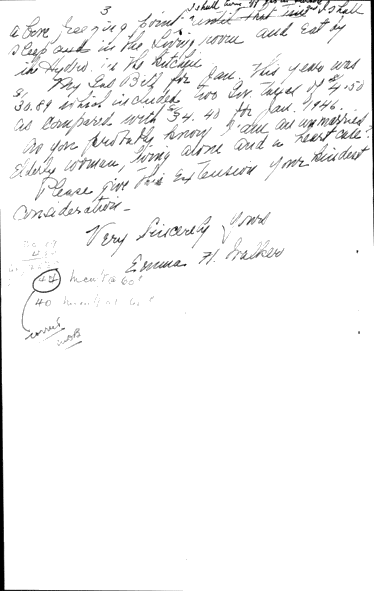 3
I shall
above freezing point until that time I shall
sleep and in the living room and eat by
the Hydro in the Kitchen
My Gas Bill for Jan. this year was
$30.89 which included two Gov. Taxes of $4.50
as compared with $4.40 for Jan. 1946.
As you probably know I am an unmarried
Elderly woman, living alone and a heart case.
Please give this Extension your kindest
consideration -
Very Sincerely Yours
Emma H. Walker
44
40